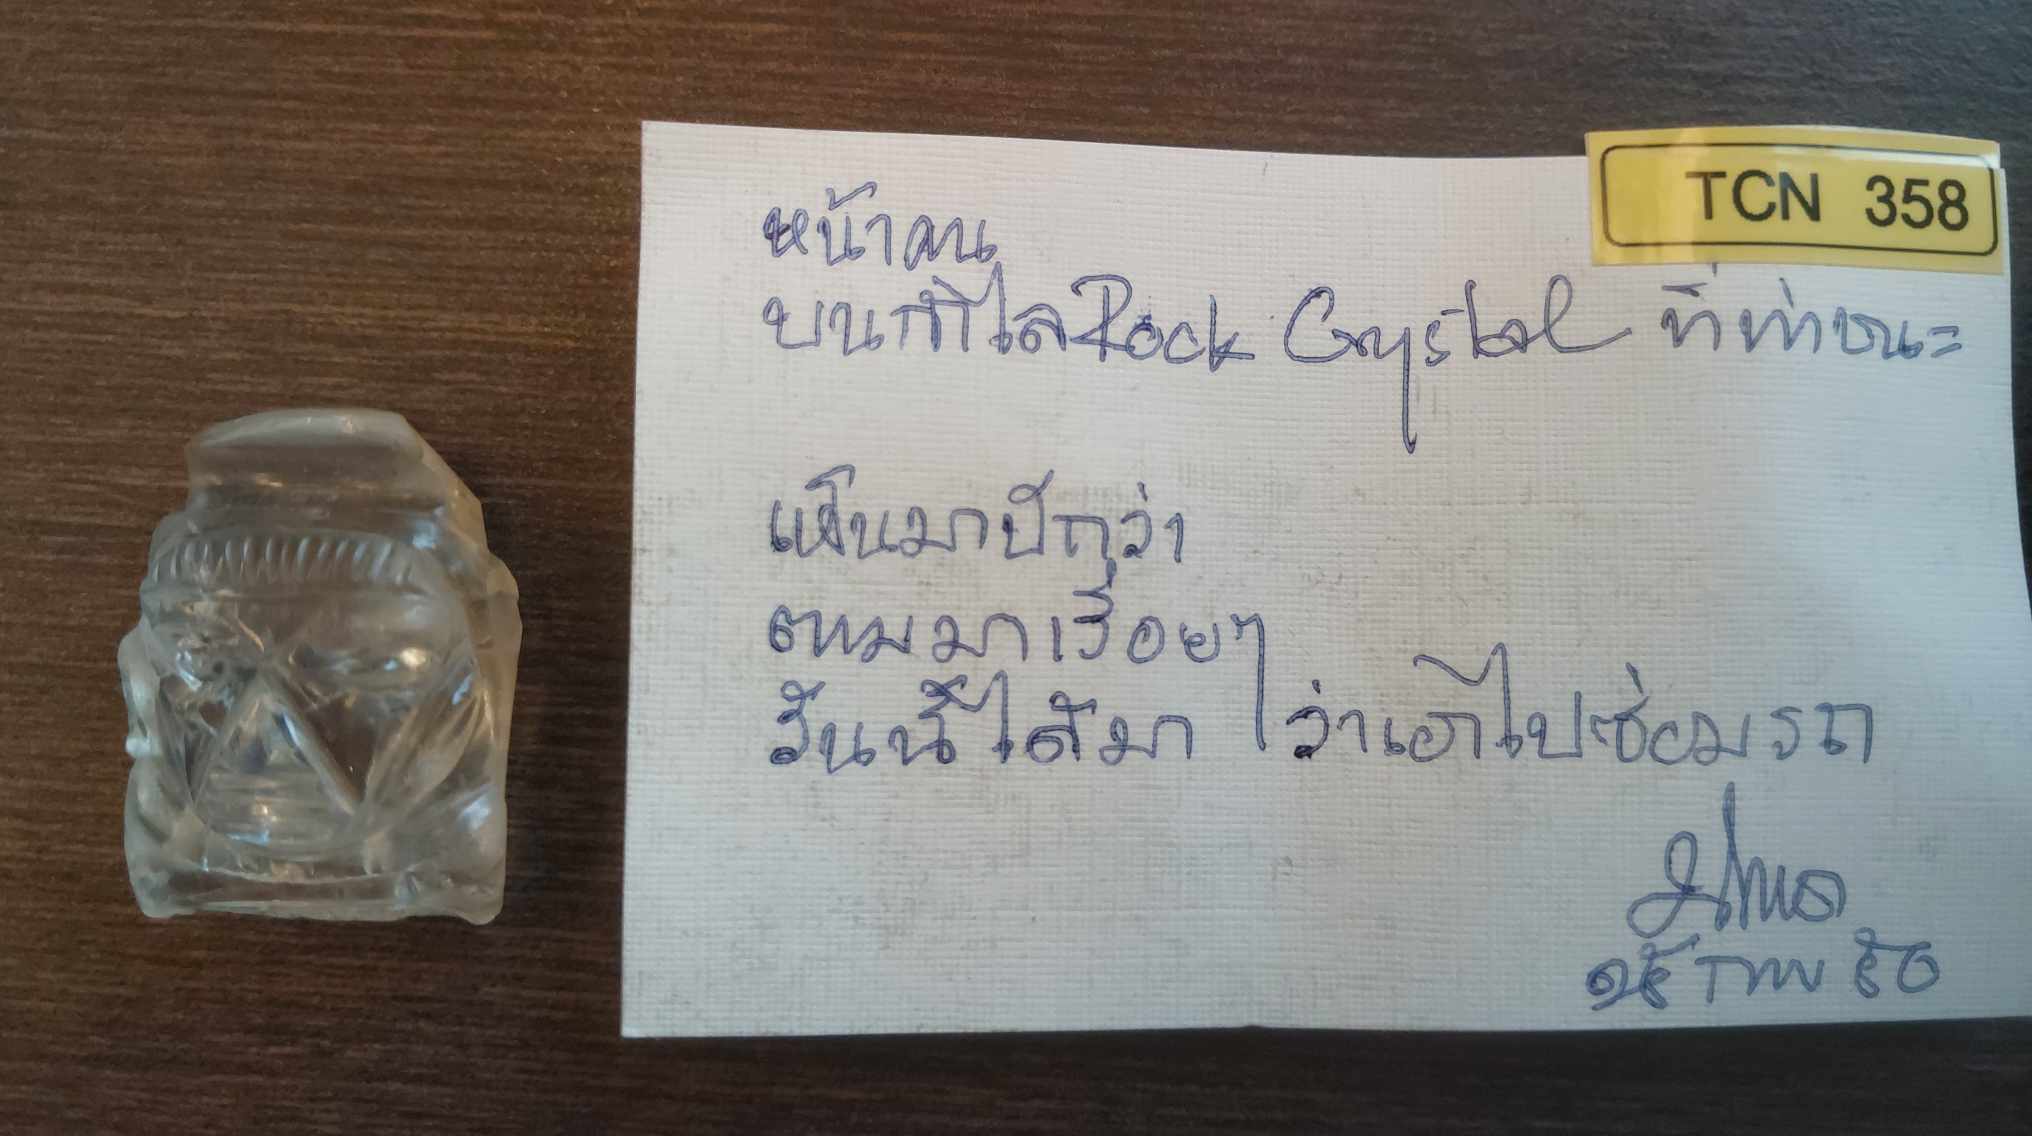 TCN 358
หน้าคน
บนกำไล Rock Crystal ที่ท่าชนะ
เห็นมาปีกว่า
ตามมาเรื่อยๆ
วันนี้ได้มา ว่าเอาไปซ่อมรถ